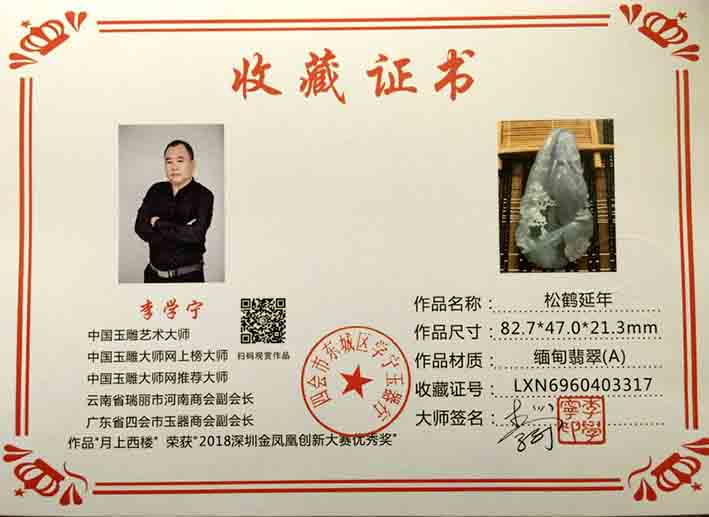 收藏证书
李学宁
中国玉雕艺术大师
中国玉雕大师网上榜大师
中国玉雕大师网推荐大师
云南省瑞丽市河南商会副会长
广东省四会市玉器商会副会长
作品"月上西楼" 荣获"2018深圳金凤凰创新大赛优秀奖"
扫码观赏作品
四会市东城区学宁玉器行
作品名称：松鹤延年
作品尺寸：82.7*47.0*21.3mm
作品材质：缅甸翡翠(A)
收藏证号：LXN6960403317
大师签名：
李學寧印